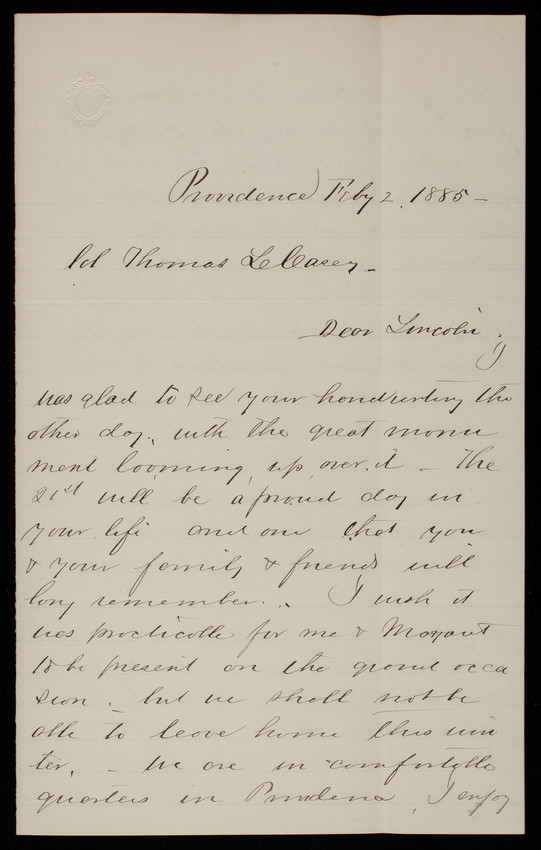 Providence Feby 2, 1885 -
Col Thomas L Casey -
Dear Lincoln; I
was glad to see your handwriting the
other day, with the great monu
ment looming up over it - The
21st will be a proud day in
your life and one that you
& your family & friends will
long remember. I wish it
was practicable for me & Margaret
to be present on the grand occa
sion - but we shall not be
able to leave home this win
ter. - We are in comfortable
quarters in Providence, I enjoy